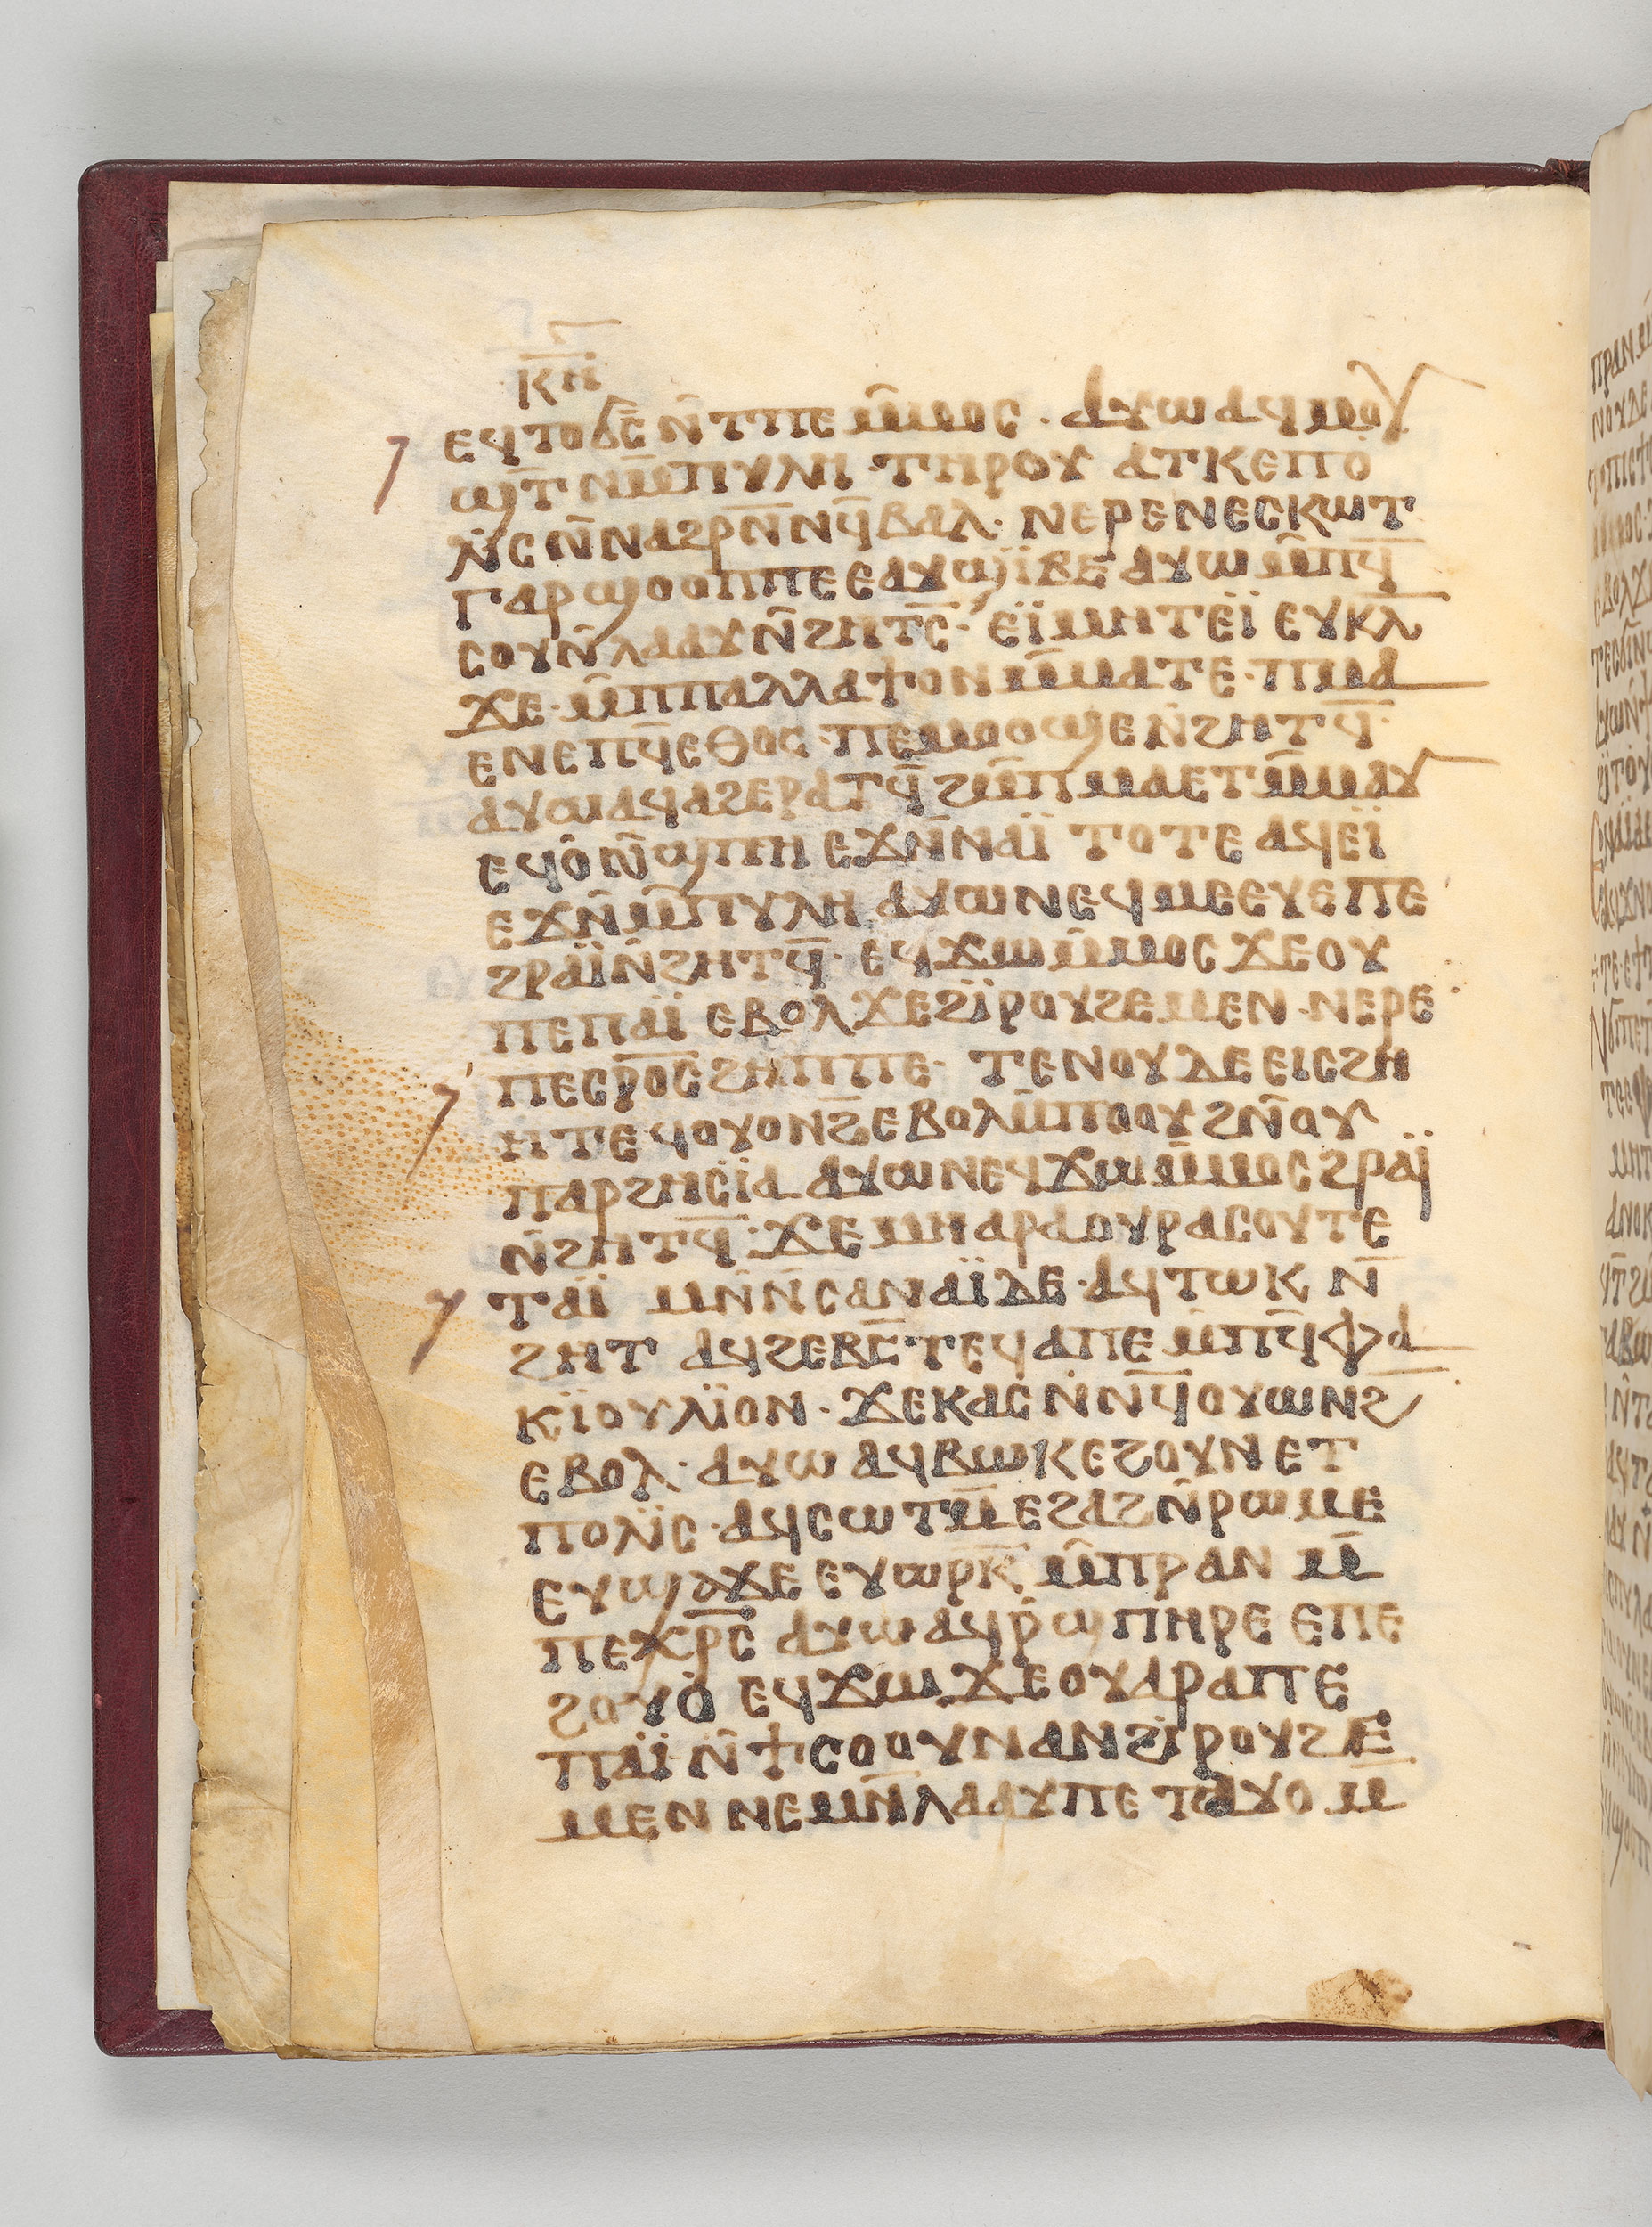 ⲕⲏ̄
ⲉϥⲧⲟϭⲉ̄ ⲛ̄ⲧⲡⲉ ⲙ̄ⲙⲟⲥ · ⲁⲩⲱ ⲁϥⲙⲟⲩ
ϣ̄ⲧ ⲛⲙ̄ⲡⲩⲗⲏ ·ⲧⲏⲣⲟⲩ ⲁⲧⲕⲉⲡⲟ
ⲗⲓ̈ⲥ ⲛ̄ⲛⲁϩⲣⲛ̄ⲛϥ̄ⲃⲁⲗ· ⲛⲉⲣⲉⲛⲉⲥⲕⲱⲧ
ⲅⲁⲣϣⲟⲟⲡⲡⲉ ⲉⲁⲩϣⲓ̈ⲃⲉ ⲁⲩⲱ ⲙ̄ⲡϥ̄
ⲥⲟⲩⲛ̄ⲗⲁⲁⲩ ⲛ̄ϩⲏⲧⲥ̄· ⲉⲓ̈ⲙⲏⲧⲉⲓ̈ ⲉⲩⲕⲗ̄
ϫⲉ·ⲙ̄ⲡⲡⲁⲗⲗⲁϯⲟⲛ ⲙ̄ⲙⲁⲧⲉ·ⲡⲙⲁ
ⲉⲛⲉⲡϥ̄ⲉⲑⲟⲥ·ⲡⲉⲙⲟⲟϣⲉ ⲛ̄ϩⲏⲧϥ̄·
ⲁⲩⲱⲁϥⲁϩⲉⲣⲁⲧϥ̄ ϩⲙ̄ⲡⲙⲁⲉⲧⲙ̄ⲙⲁⲩ
ⲉϥⲟ̂ⲛ̄ϣⲡⲏ ⲉϫⲛ̄ⲛⲁⲓ̈ ⲧⲟⲧⲉ ⲁϥⲉⲓ̈
ⲉϫⲛ̄ⲙ̄ⲡⲩⲗⲏ ⲁⲩⲱⲛⲉϥⲙⲉⲉⲩⲉⲡⲉ
ϩⲣⲁⲓ̈ⲛ̄ϩⲏⲧϥ̄· ⲉϥϫⲱⲙ̄ⲙⲟⲥ ϫⲉⲟⲩ
ⲡⲉⲡⲁⲓ̈ ⲉⲃⲟⲗϫⲉϩⲓ̈ⲣⲟⲩϩⲉⲙⲉⲛ·ⲛⲉⲣⲉ
ⲡⲉⲥⲣⲟ̄ⲥϩⲏⲡⲡⲉ· ⲧⲉⲛⲟⲩⲇⲉ ⲉⲓⲥϩⲏ
ⲏⲧⲉϥⲟⲩⲟⲛϩ̄ⲉⲃⲟⲗⲙ̄ⲡⲟⲟⲩϩⲛ̄ⲟⲩ
ⲡⲁⲣϩⲏⲥⲓ̈ⲁ ⲁⲩⲱⲛⲉϥϫⲱⲙ̄ⲙⲟⲥϩⲣⲁⲓ̈
ⲛ̄ϩⲏⲧϥ̄·ϫⲉⲙⲏⲁⲣⲁⲟⲩⲣⲁⲥⲟⲩⲧⲉ
ⲧⲁⲓ̈ ⲙⲛ̄ⲛ̄ⲥⲁⲛⲁⲓ̈ⲇⲉ·ⲁϥⲧⲱⲕ ⲛ̄
ϩⲏⲧ ⲁϥϩⲉⲃⲥ̄ⲧⲉϥⲁⲡⲉ ⲙ̄ⲡϥ̄ⲫⲁ
ⲕⲓ̈ⲟⲩⲗⲓ̈ⲟⲛ· ϫⲉⲕⲁⲥ ⲛ̄ⲛϥ̄ⲟⲩⲱⲛϩ̄
ⲉⲃⲟⲗ· ⲁⲩⲱ ⲁϥⲃⲱⲕⲉϩⲟⲩⲛⲉⲧ
ⲡⲟⲗⲓ̈ⲥ·ⲁϥⲥⲱⲧⲙ̄ⲉϩⲁϩⲛ̄ⲣⲱⲙⲉ
ⲉⲩϣⲁϫⲉ ⲉⲩⲱⲣⲕ̄ ⲙ̄ⲡⲣⲁⲛ ⲙ̄
ⲡⲉⲭⲣ̄ⲥ ⲁⲩⲱⲁϥⲣ̄ϣⲡⲏⲣⲉ ⲉⲡⲉ
ϩⲟⲩⲟ̀ ⲉϥϫⲱϫⲉⲟⲩⲁⲣⲁⲡⲉ
ⲡⲁⲓ̈·ⲛ̄ϯⲥⲟⲟⲩⲛⲁⲛϩⲓ̈ⲣⲟⲩϩⲉ
ⲙⲉⲛ ⲛⲉⲙⲛ̄ⲗⲁⲁⲩⲡⲉ ⲧⲁⲩⲟ ⲙ̄